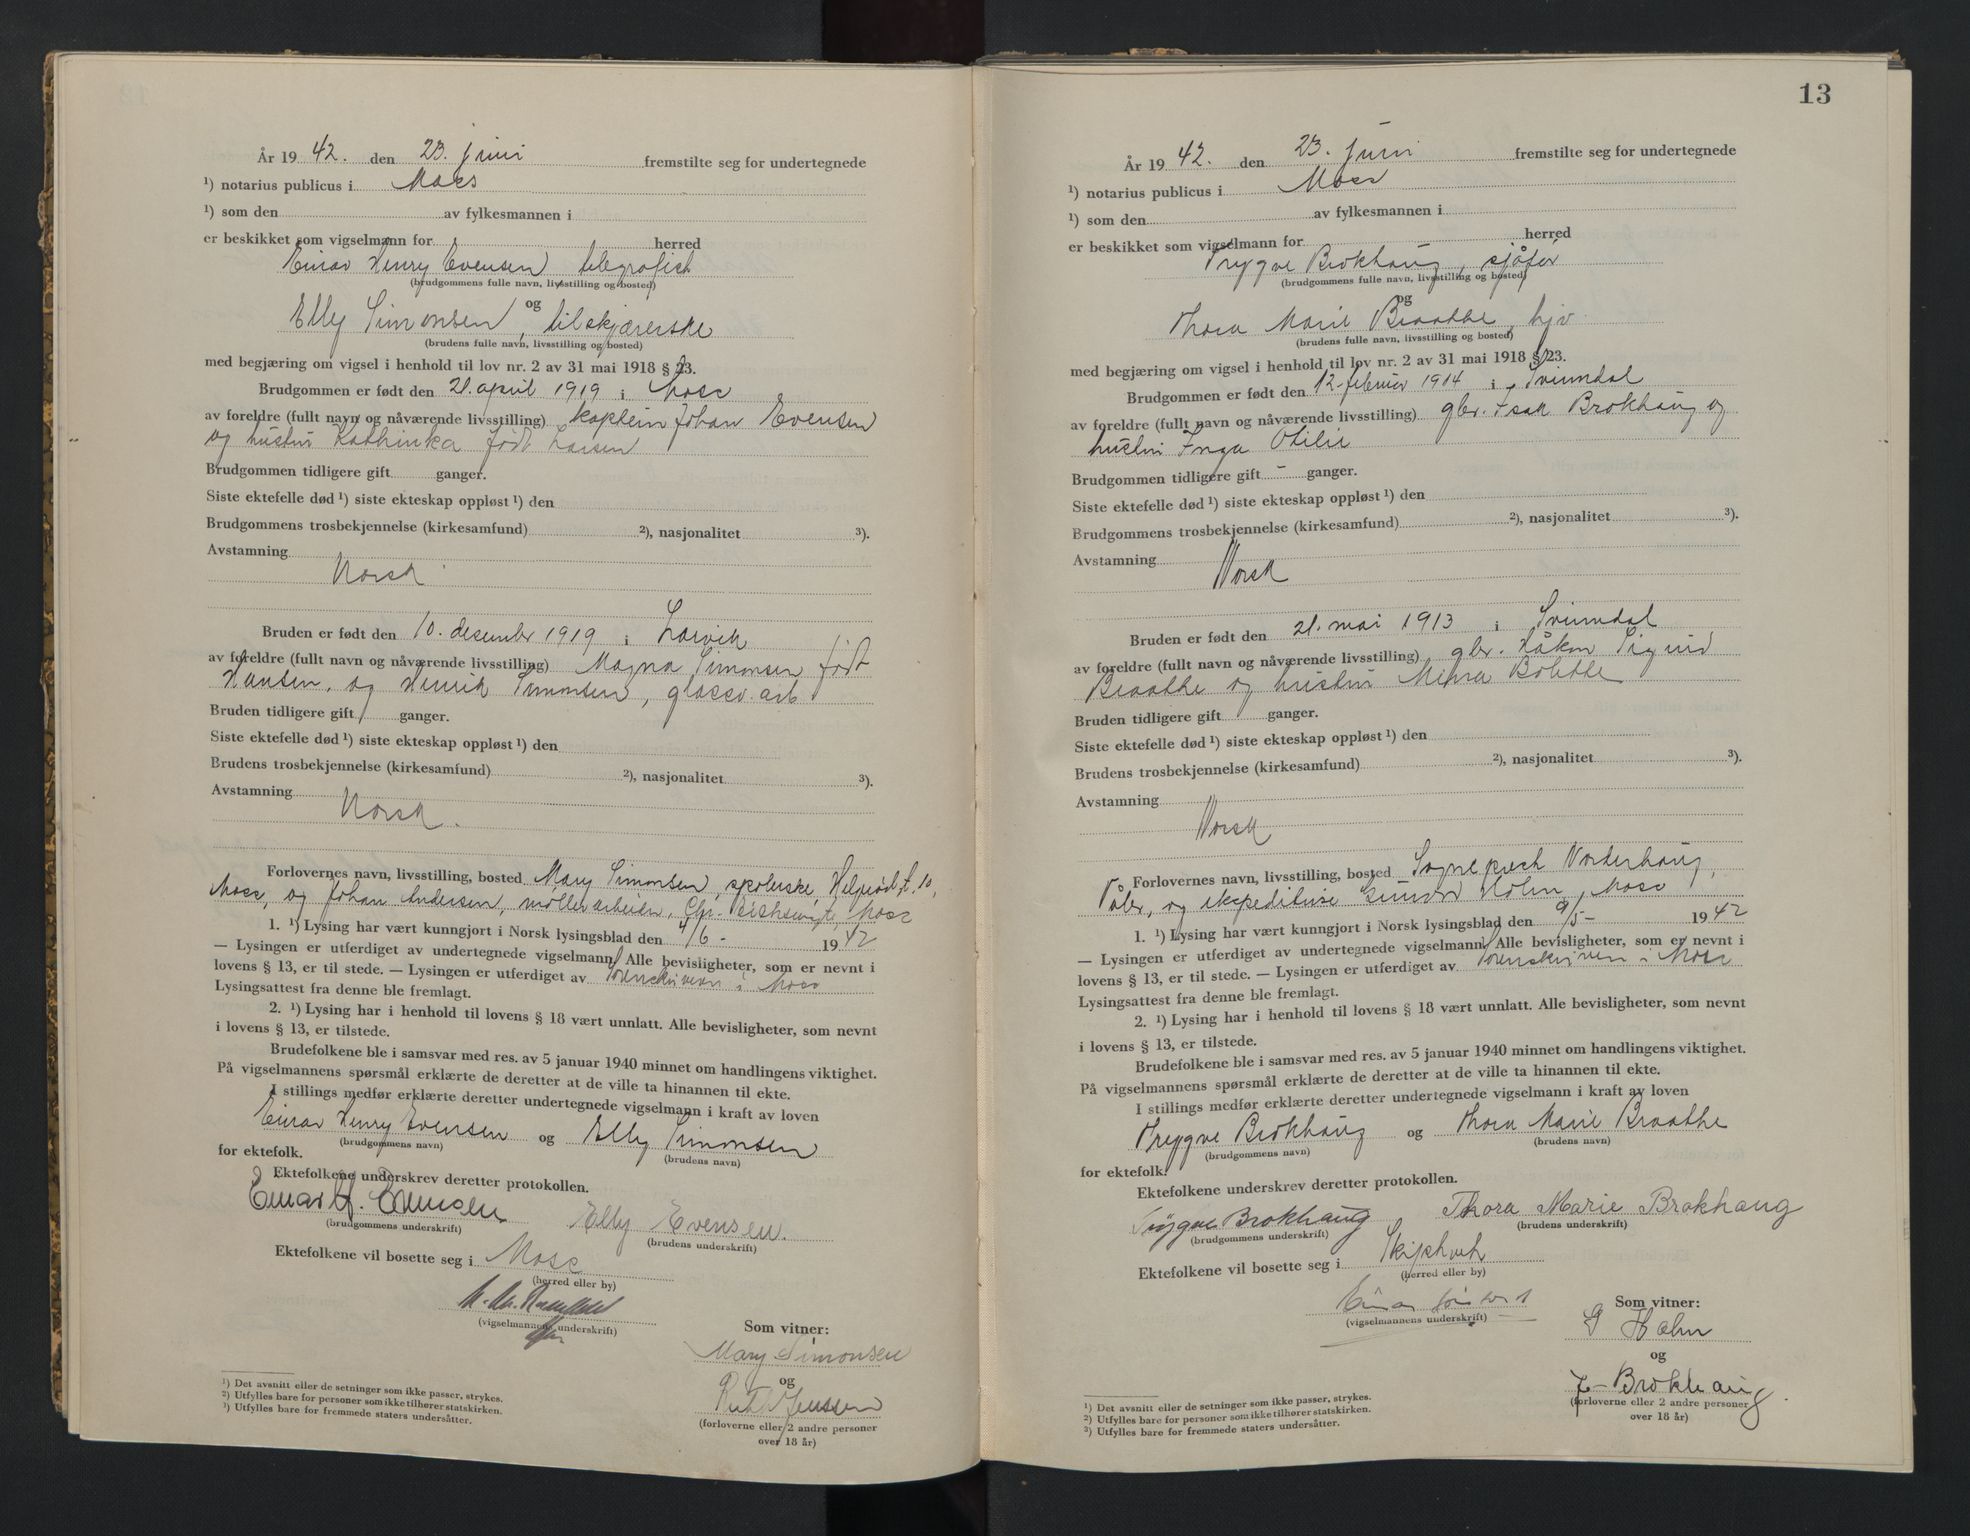 År 1942. den 23. juni fremstilte seg for undertegnede
¹) notarius publicus i Moss
¹) som den av fylkesmannen i
er beskikket som vigselmann for herred
Einar Henry Evensen telegrafist
(brudgommens fulle navn, livsstilling og bosted)
og
Elly Simonsen, tilskjærerske
(brudens fulle navn, livsstilling og bosted)
med begjæring om vigsel i henhold til lov nr. 2 av 31 mai 1918 § 23.
Brudgommen er født den 21. april 1919 i Moss
av foreldre (fullt navn og nåværende livsstilling) kaptein Johan Evensen
og hustru Kathinka født Larsen
Brudgommen tidligere gift ganger.
Siste ektefelle død ¹) siste ekteskap oppløst ¹) den
Brudgommens trosbekjennelse (kirkesamfund) ²), nasjonalitet ³).
Avstamning
Norsk
Bruden er født den 10. desember 1919 i Larvik
av foreldre (fullt navn og nåværende livsstilling) Magna Simonsen født
Hansen, og Henrik Simonsen, glassv.arb
Bruden tidligere gift ganger.
Siste ektefelle død ¹) siste ekteskap oppløst ¹) den
Brudens trosbekjennelse (kirkesamfund) ²), nasjonalitet ³).
Avstamning
Norsk.
Forlovernes navn, livsstilling, bosted Mary Simonsen, 10,
Moss, og Johan Andersen, møllearbeider, Chr. Moss
1. ¹) Lysing har vært kunngjort i Norsk lysingsblad den 4/6- 1942
— Lysingen er utferdiget av undertegnede vigselmann. Alle bevisligheter, som er nevnt i
lovens § 13, er til stede. — Lysingen er utferdiget av Sorenskriveren i Moss
Lysingsattest fra denne ble fremlagt.
2. ¹) Lysing har i henhold til lovens § 18 vært unnlatt. Alle bevisligheter, som nevnt
i lovens § 13, er tilstede.
Brudefolkene ble i samsvar med res. av 5 januar 1940 minnet om handlingens viktighet.
På vigselmannens spørsmål erklærte de deretter at de ville ta hinannen til ekte.
I stillings medfør erklærte deretter undertegnede vigselmann i kraft av loven
Einar Henry Evensen og Elly Simonsen
(brudgommens navn) (brudens navn)
for ektefolk.
Ektefolkene underskrev deretter protokollen.
Einar H. Evensen Elly Evensen.
(brudgommens underskrift) (brudens underskrift)
Ektefolkene vil bosette seg i Moss
(herred eller by)
(vigselmannens underskrift)
Som vitner:
Mary Simonsen
og
Ruth Jenssen
(forloverne eller 2 andre personer
over 18 år)
¹) Det avsnitt eller de setninger som ikke passer, strykes.
²) Utfylles bare for personer som ikke tilhører statskirken.
³) Utfylles bare for fremmede staters undersåtter.
13
År 1942. den 23. juni fremstilte seg for undertegnede
¹) notarius publicus i Moss
¹) som den av fylkesmannen i
er beskikket som vigselmann for herred
Trygve Brokhaug, sjåfør
(brudgommens fulle navn, livsstilling og bosted)
og
Thora Marie Braathe, hjv.
(brudens fulle navn, livsstilling og bosted)
med begjæring om vigsel i henhold til lov nr. 2 av 31 mai 1918 § 23.
Brudgommen er født den 12. februar 1914 i Svinndal
av foreldre (fullt navn og nåværende livsstilling) gbr. Isak Brokhaug og
hustru Inga Otilie
Brudgommen tidligere gift - ganger.
Siste ektefelle død ¹) siste ekteskap oppløst ¹) den
Brudgommens trosbekjennelse (kirkesamfund) ²), nasjonalitet ³).
Avstamning
Norsk
Bruden er født den 21. mai 1913 i Svinndal
av foreldre (fullt navn og nåværende livsstilling) gbr. Håkon Sigurd
Braathe og hustru Minra Bolette
Bruden tidligere gift ganger.
Siste ektefelle død ¹) siste ekteskap oppløst ¹) den
Brudens trosbekjennelse (kirkesamfund) ²), nasjonalitet ³).
Avstamning
Norsk
Forlovernes navn, livsstilling, bosted Sogneprest Norderhaug,
Våler, og ekspeditrise Gunvor Holm, Moss
1. ¹) Lysing har vært kunngjort i Norsk lysingsblad den 9/5- 1942
— Lysingen er utferdiget av undertegnede vigselmann. Alle bevisligheter, som er nevnt i
lovens § 13, er til stede. — Lysingen er utferdiget av Sorenskriveren i Moss
Lysingsattest fra denne ble fremlagt.
2. ¹) Lysing har i henhold til lovens § 18 vært unnlatt. Alle bevisligheter, som nevnt
i lovens § 13, er tilstede.
Brudefolkene ble i samsvar med res. av 5 januar 1940 minnet om handlingens viktighet.
På vigselmannens spørsmål erklærte de deretter at de ville ta hinannen til ekte.
I stillings medfør erklærte deretter undertegnede vigselmann i kraft av loven
Trygve Brokhaug og Thora Marie Braathe
(brudgommens navn) (brudens navn)
for ektefolk.
Ektefolkene underskrev deretter protokollen.
Trygve Brokhaug Thora Marie Brokhaug
(brudgommens underskrift) (brudens underskrift)
Ektefolkene vil bosette seg i Skiptvet
(herred eller by)
Einar
(vigselmannens underskrift)
Som vitner:
G Holm
og
I- Brokhaug.
(forloverne eller 2 andre personer
over 18 år)
¹) Det avsnitt eller de setninger som ikke passer, strykes.
²) Utfylles bare for personer som ikke tilhører statskirken.
³) Utfylles bare for fremmede staters undersåtter.